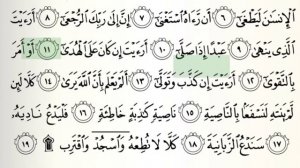 ٱلْإِنسَـٰنَ لَيَطْغَىٰٓ ٦ أَن رَّءَاهُ ٱسْتَغْنَىٰٓ ٧ إِنَّ إِلَىٰ رَبِّكَ ٱلرُّجْعَىٰٓ ٨ أَرَءَيْتَ
ٱلَّذِى يَنْهَىٰ ٩ عَبْدًا إِذَا صَلَّىٰٓ ١٠ أَرَءَيْتَ إِن كَانَ عَلَى ٱلْهُدَىٰٓ ١١ أَوْ أَمَرَ
بِٱلتَّقْوَىٰٓ ١٢ أَرَءَيْتَ إِن كَذَّبَ وَتَوَلَّىٰٓ ١٣ أَلَمْ يَعْلَم بِأَنَّ ٱللَّهَ يَرَىٰ ١٤ كَلَّا لَئِن
لَّمْ يَنتَهِ لَنَسْفَعًۢا بِٱلنَّاصِيَةِ ١٥ نَاصِيَةٍ كَـٰذِبَةٍ خَاطِئَةٍ ١٦ فَلْيَدْعُ نَادِيَهُۥ
١٧ سَنَدْعُ ٱلزَّبَانِيَةَ ١٨ كَلَّا لَا تُطِعْهُ وَٱسْجُدْ وَٱقْتَرِب ۩ ١٩